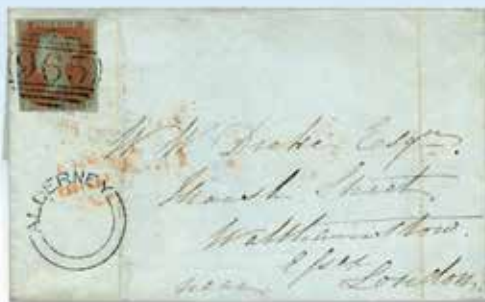 965
ALDERNEY
W. W. Drake Esqre.
Marsh Street,
Walthamstow.
Essex
near London.